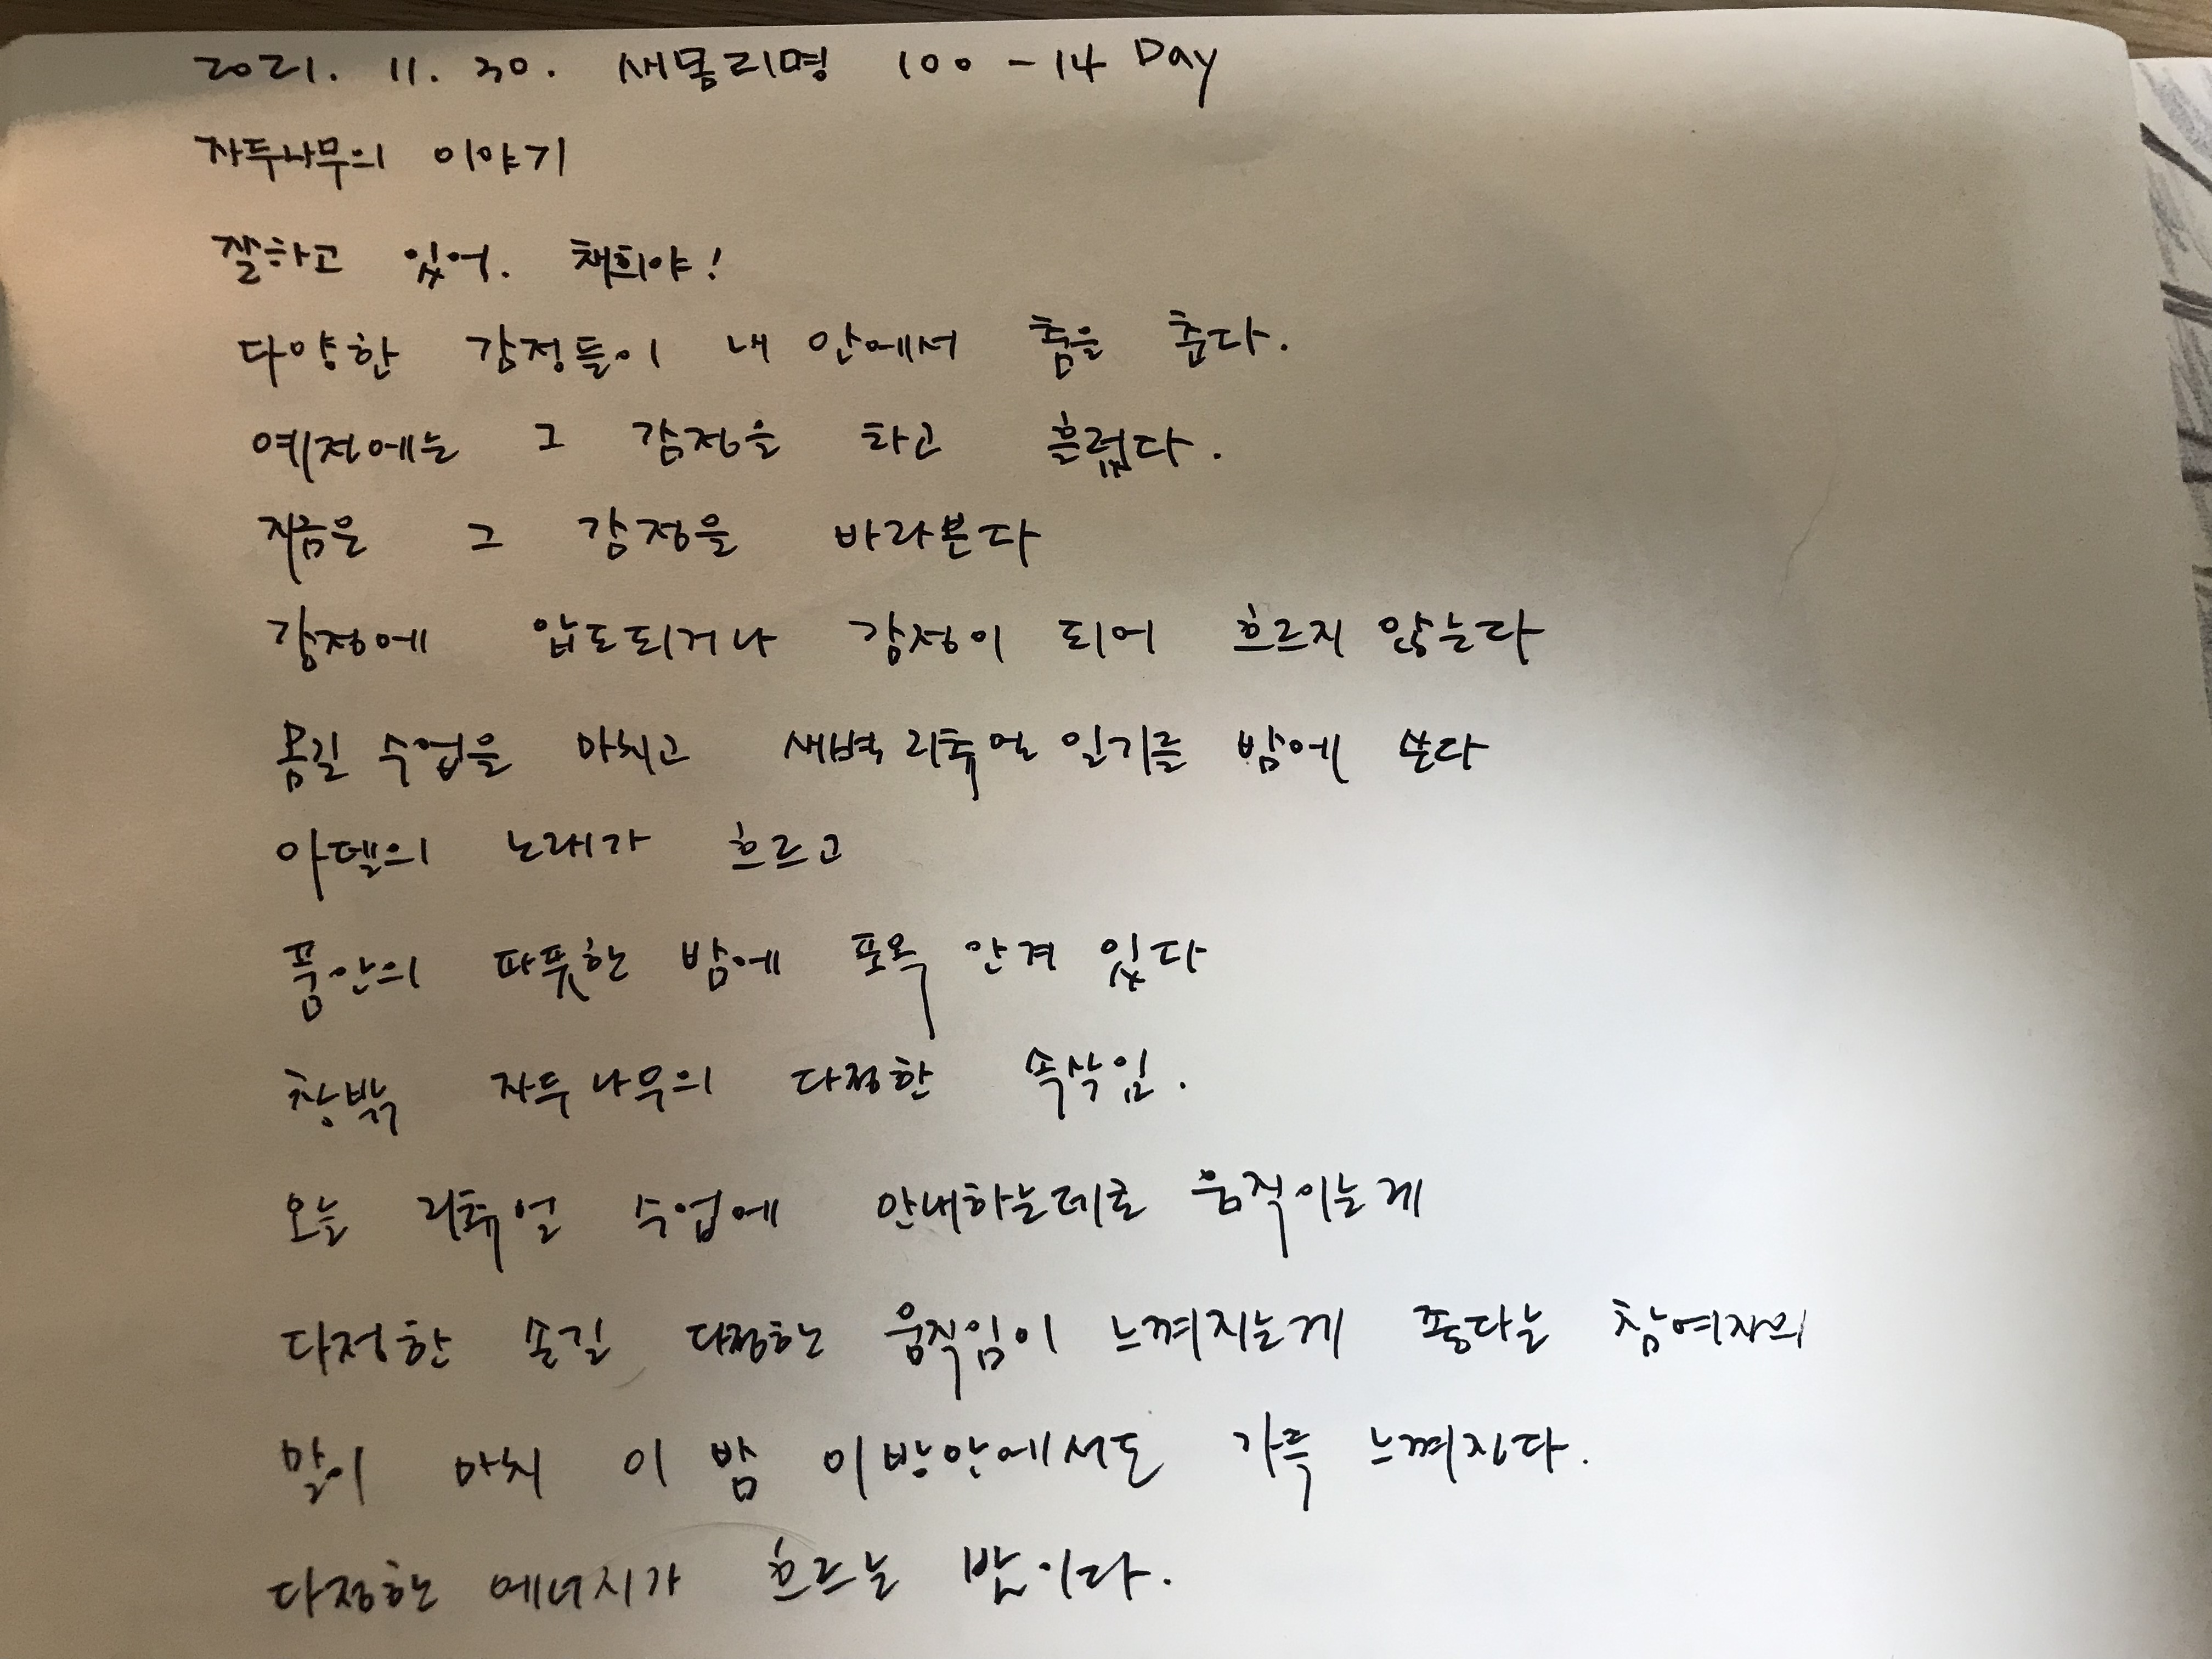 2021. 11. 30. 새몸리명 100 - 14 Day
자두나무의 이야기
잘하고 있어. 채희야!
다양한 감정들이 내 안에서 춤을 춘다.
예전에는 그 감정을 타고 흘렀다.
지금은 그 감정을 바라본다
감정에 압도되거나 감정이 되어 흐르지 않는다
몸길 수업을 마치고 새벽 리츄얼 일기를 밤에 쓴다
아델의 노래가 흐르고
품안의 따뜻한 밤에 포옥 안겨 있다
창밖 자두나무의 다정한 속삭임.
오늘 리츄얼 수업에 안내하는데로 움직이는게
다정한 손길 다정한 움직임이 느껴지는게 좋다는 참여자의
말이 마치 이 밤 이방안에서도 가득 느껴진다.
다정한 에너지가 흐르는 밤이다.